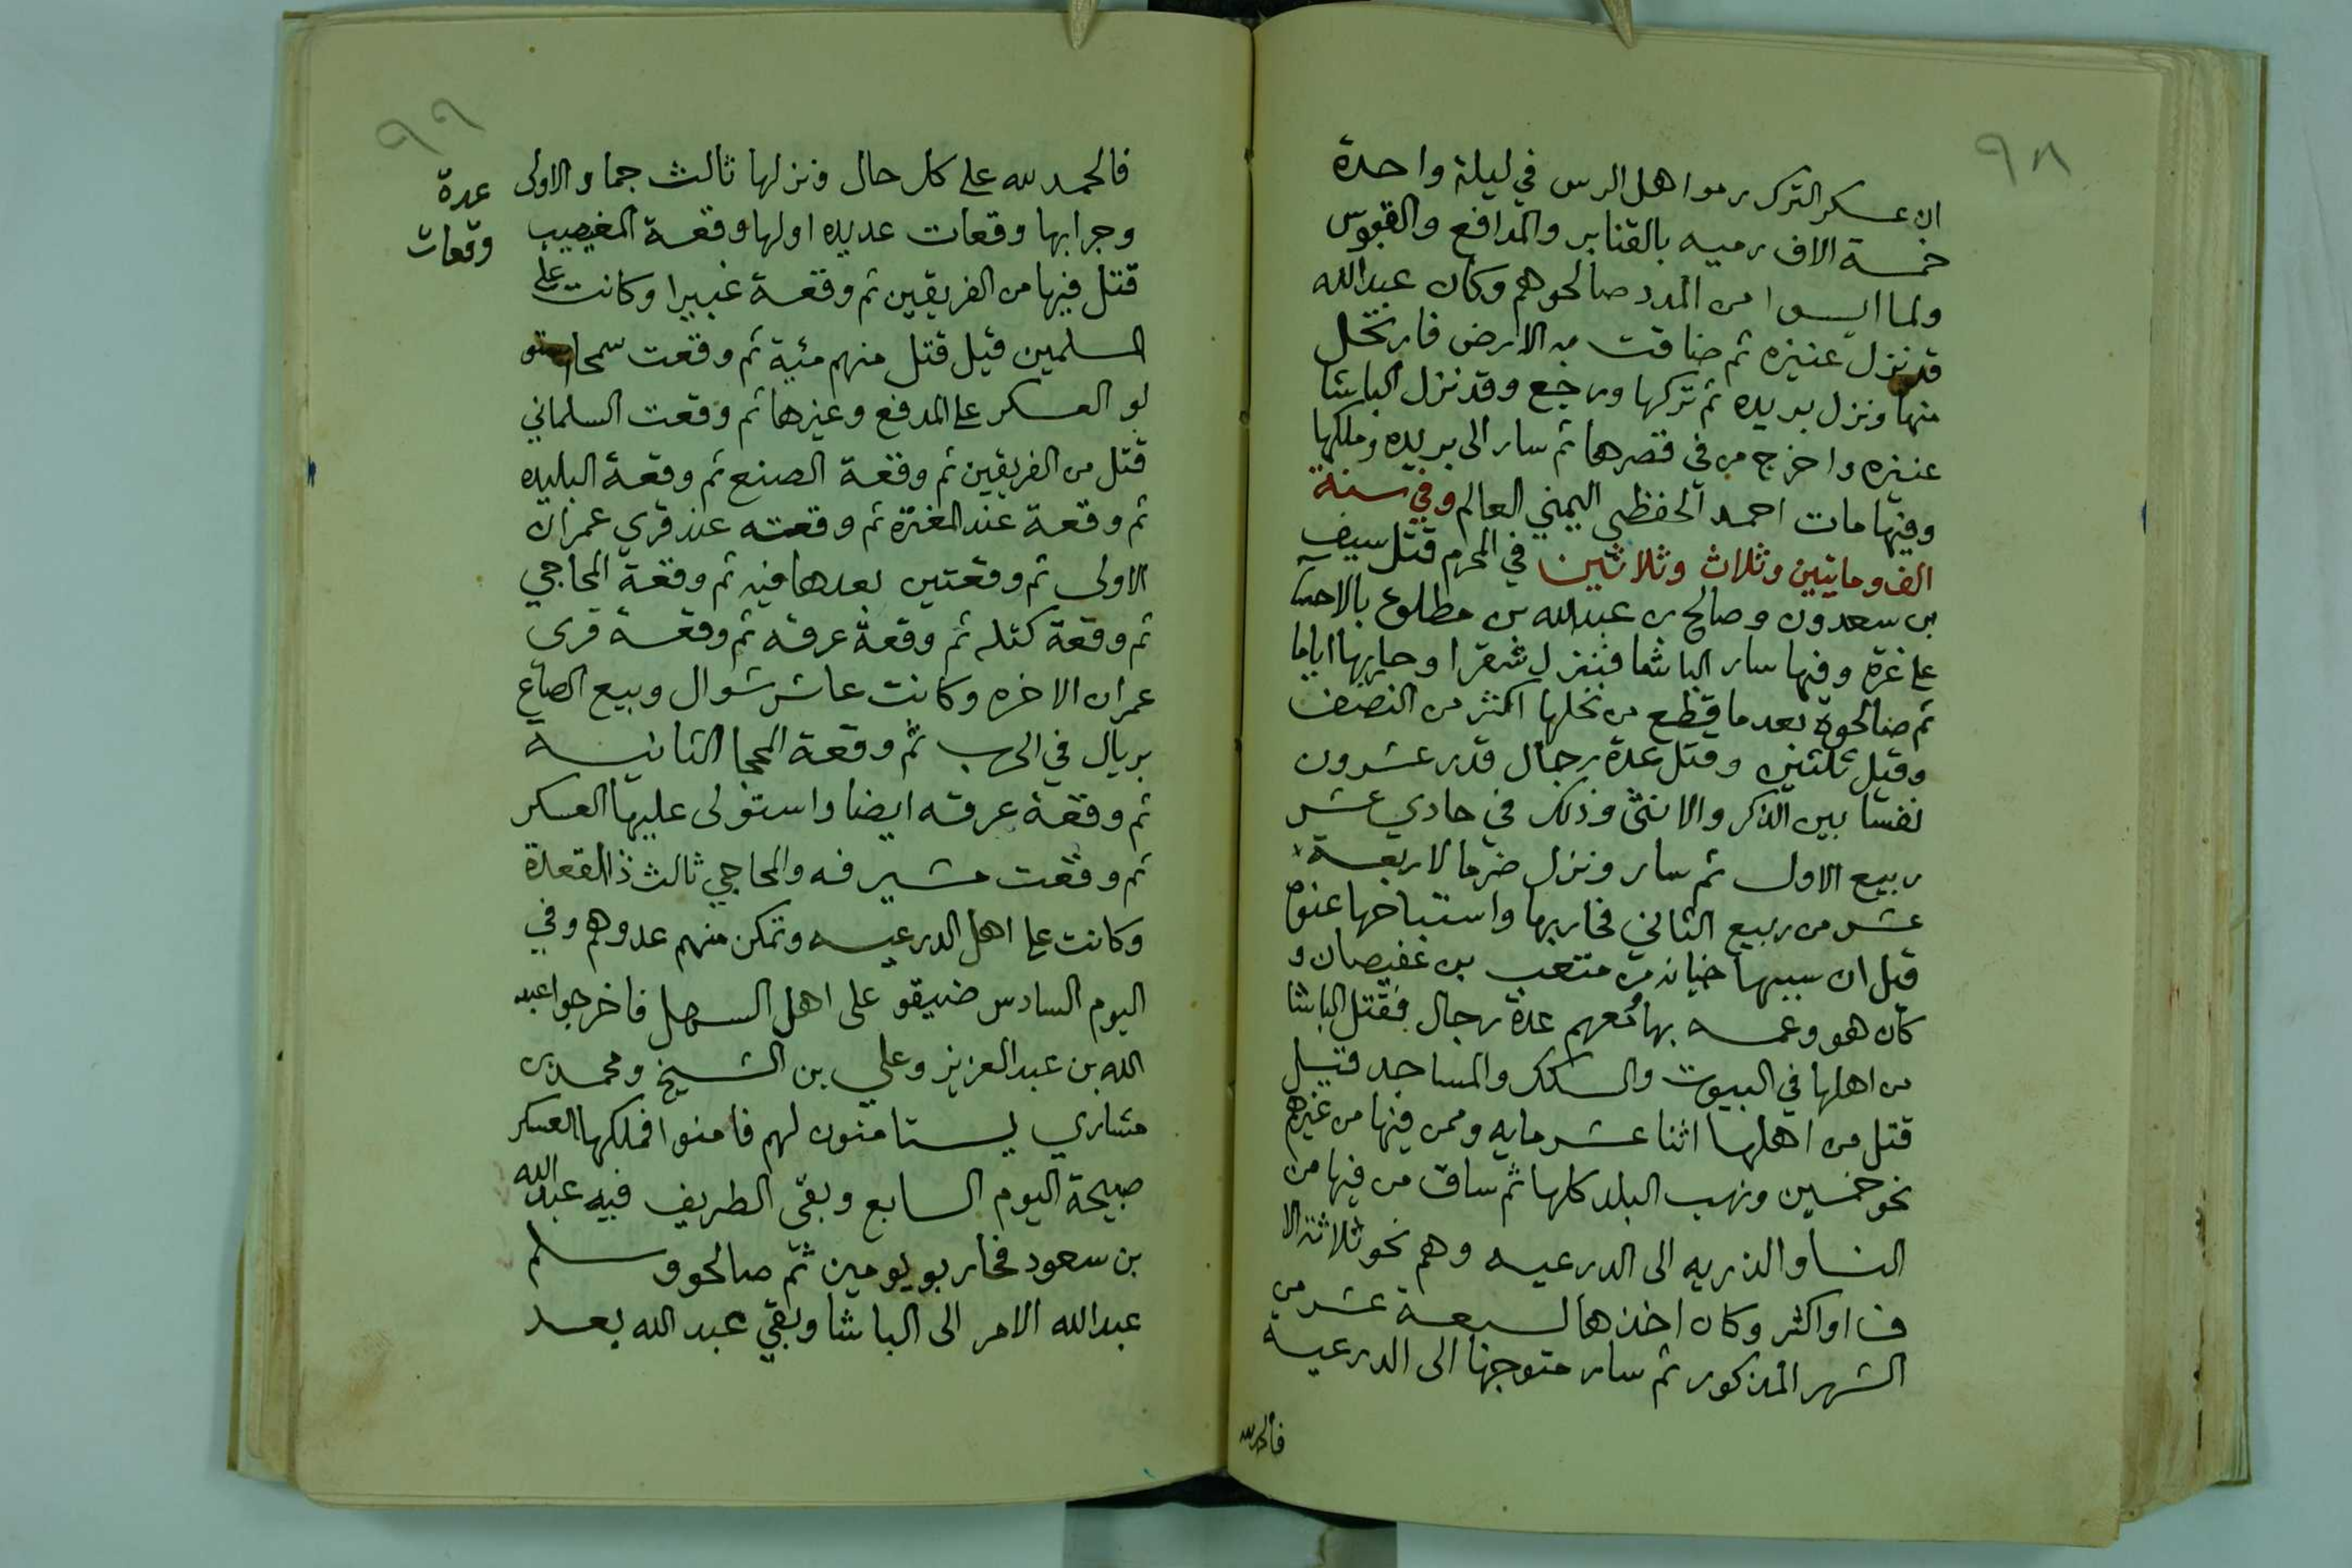 ٩٨
ان عسكر الترك رموا هل الرس في ليلة واحدة
خمسة الاف رميه بالقنابر والمدافع والقبوس
ولما ايسوا من المدد صالحوهم وكان عبدالله
قد نزل عنيزه ثم ضاقت به الارض فارتحل
منها ونزل بريده ثم تركها ورجع وقد نزل الباشا
عنيزه واخرج من في قصرها ثم سار الى بريده وملكها
وفيها مات احمد الحفظي اليمني العالم وفي سنة
الف ومايتين وثلاث وثلاثين في المحرم قتل سيف
بن سعدون وصالح بن عبدالله بن مطلوع بالاحسا
على غرة وفيها سار الباشا فنزل شقرا وحاربها اياما
ثم صالحوة بعد ما قطع من نخلها اكثر من النصف
وقيل ثلثين وقتل عدة رجال قدر عشرون
نفسا بين الذكر والانثى وذلك في حادي عشر
ربيع الاول ثم سار ونزل ضرما لاربعة
عشر من ربيع الثاني فحاربها واستباحها عنوة
قيل ان سببها خيانه من متعب بن عفيصان و
كان هو وعمه بها معهم عدة رجال فقتل الباشا
من اهلها في البيوت والسكك والمساجد قتيل
قتل من اهلها اثنا عشر مايه وممن فيها من غيرهم
نحو خمسين ونهب البلد كلها ثم ساق من فيها من
النسا والذريه الى الدرعيه وهم نحو ثلاثة الا
ف او اكثر وكان اخذها لسبعة عشر من
الشهر المذكور ثم سار متوجها الى الدرعية
فالحمد لله
٩٩
فالحمد لله على كل حال ونزلها ثالث جماد الاولى
وجرا بها وقعات عديده اولها وقعة المغيصيب
قتل فيها من الفريقين ثم وقعة غبيرا وكانت على
المسلمين قيل قتل منهم مئية ثم وقعت سمحا ستو
لو العسكر على المدفع وغيرها ثم وقعت السلماني
قتل من الفريقين ثم وقعة الصنع ثم وقعة البليده
ثم وقعة عند المغترة ثم وقعته عند قري عمران
الاولى ثم وقعتين بعدها فيه ثم وقعة المحاجي
ثم وقعة كتله ثم وقعة عرقه ثم وقعة قرى
عمران الاخره وكانت عاشر شوال وبيع الصاع
بريال في الحرب ثم وقعة المحجا الثانية
ثم وقعة عرقه ايضا واستولى عليها العسكر
ثم وقعت مشيرفه والمحاجي ثالث ذا القعدة
وكانت على اهل الدرعيه وتمكن منهم عدوهم وفي
اليوم السادس ضيقو على اهل السهل فاخرجوا عبد
الله بن عبدالعزيز وعلي بن الشيخ ومحمد بن
مشاري يستامنون لهم فامنوا فملكها العسكر
صبيحة اليوم السابع وبقي الطريف فيه عبدالله
بن سعود فحاربو يومين ثم صالحو وسلم
عبدالله الامر الى الباشا وبقي عبد الله بعد
عدة
وقعات